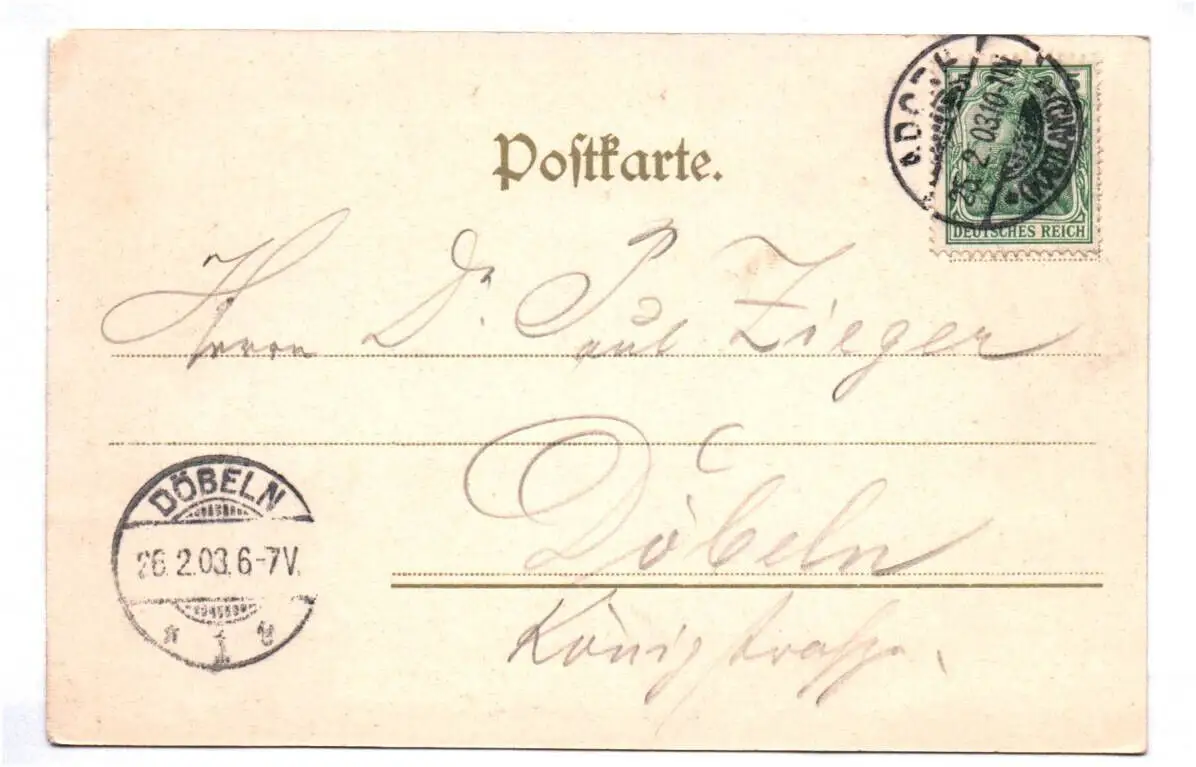 Postkarte.
ADORF
(VOGTLAND)
25 2 03.10-11N
DEUTSCHES REICH
Herrn Dr. Paul Zieger
Döbeln
Königstrasse.
DÖBELN
26.2.03.6-7V.
* 1 *